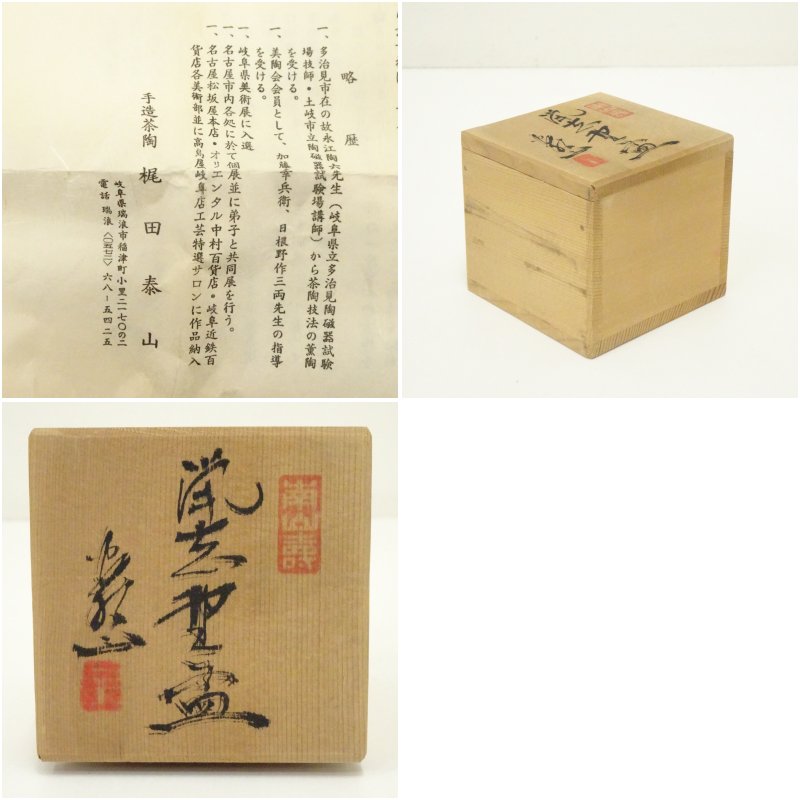 略歴
一、多治見市在の故永江陶六先生(岐阜県立多治見陶磁器試験
場技師・土岐市立陶磁器試験場講師)から茶陶技法の薫陶
を受ける。
一、美陶会会員として、加藤幸兵衛、日根野作三両先生の指導
を受ける。
一、岐阜県美術展に入選
一、名古屋市内各処に於て個展並に弟子と共同展を行う。
一、名古屋松坂屋本店・オリエンタル中村百貨店・岐阜近鉄百
貨店各美術部並に高島屋岐阜店工芸特選サロンに作品納入
手造茶陶 梶田泰山
岐阜県瑞浪市稲津町小里二一七〇の二
電話 瑞浪〈〇五七二〉六八ー五四二五
南山壽
志野
盃
泰山